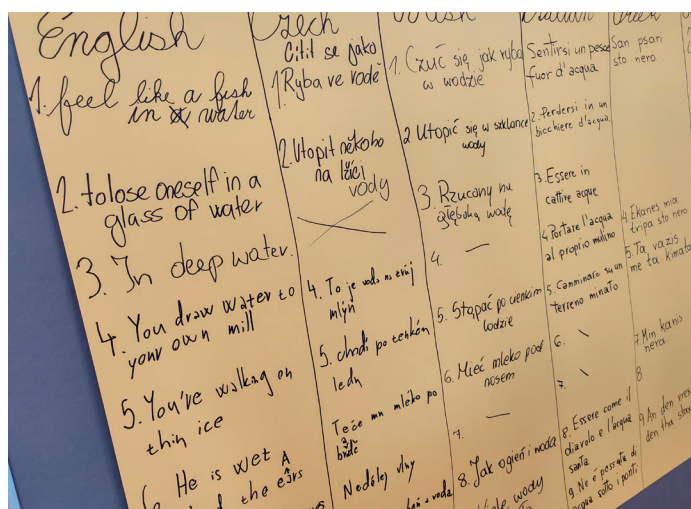 English
1. feel like a fish
in water
2. to lose oneself in a
glass of water
3. In deep water.
4. You draw water to
your own mill
5. You're walking on
thin ice
He is wet
the ears
Czech
Cítit se jako
1 Ryba ve vodě
2. Utopit někoho
na lžíci
vody
4. To je voda na tvůj
mlýn
5. chodí po tenkém
ledu
Teče mu mléko po
bradě
Nedělej vlny
voda
1. Czuć się jak ryba
w wodzie
2 Utopić się w szklance
wody
3. Rzucony na
głęboką wodę
4. —
5. Stąpać po cienkim
lodzie
6. Mieć mleko pod
nosem
7. —
8. Jak ogień i woda
wody
Sentirsi un pesce
fuor d'acqua
2. Perdersi in un
bicchiere d'acqua
3. Essere in
cattive acque
4. Portare l'acqua
al proprio mulino
5. Camminare su un
terreno minato
6. \
7. \
8. Essere come il
diavolo e l'acqua
santa
9. Ne è passata di
acqua sotto i ponti
San psari
sto nero
4. Ekanes mia
tripa sto nero
5. Ta vazis
me ta kimata
7. Min kanis
nera
8
9. An den
den tha